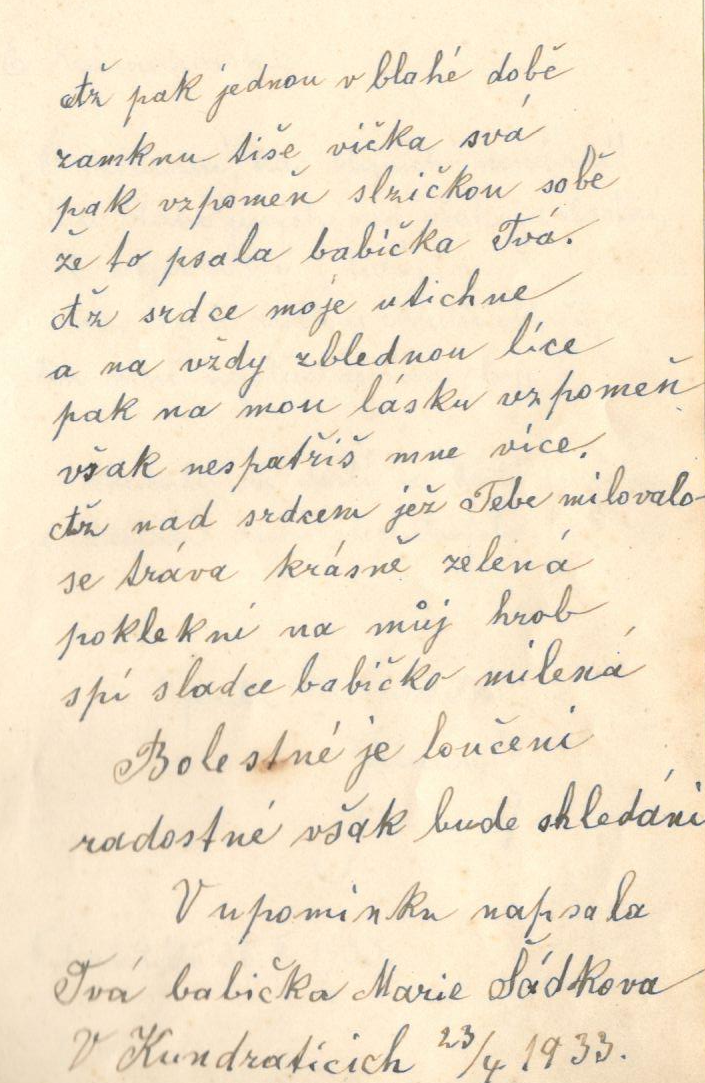 Až pak jednou v blahé době
zamknu tiše víčka svá
pak vzpomeň slzičkou sobě
že to psala babička Tvá.
Až srdce moje utichne
a na vždy zblednou líce
pak na mou lásku vzpomeň
však nespatříš mne více.
Až nad srdcem jež Tebe milovalo
se tráva krásně zelená
poklekni na můj hrob
spi sladce babičko milená
Bolestné je loučení
radostné však bude shledání
V upomínku napsala
Tvá babička Marie Šádkova
V Kundraticich 23/4 1933.